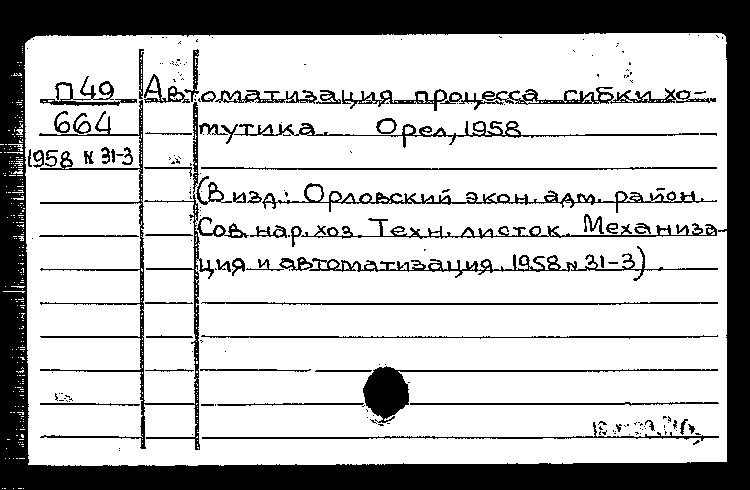 П49 Автоматизация процесса гибки хо-
664 мутика. Орел, 1958
1958 N 31-3
(В изд.: Орловский экон. адм. район.
Сов. нар. хоз. Техн. листок. Механиза-
ция и автоматизация. 1958 N 31-3).